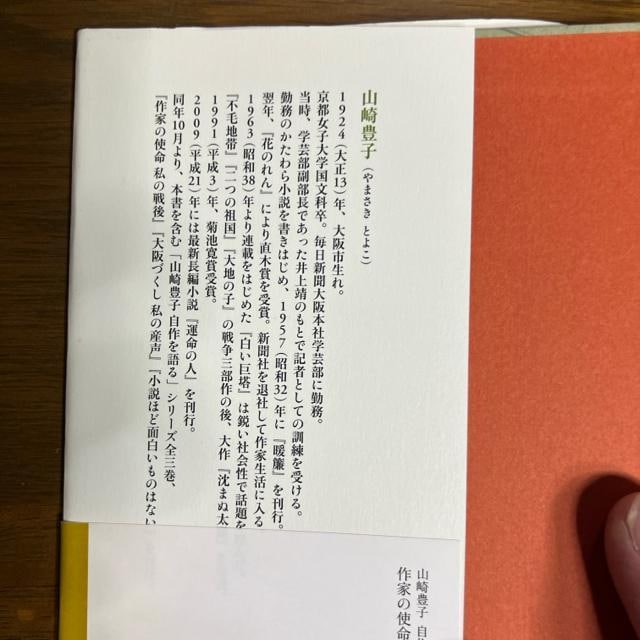 山崎豊子(やまさき とよこ)
1924(大正13)年、大阪市生れ。
京都女子大学国文科卒。毎日新聞大阪本社学芸部に勤務。
当時、学芸部副部長であった井上靖のもとで記者としての訓練を受ける。
勤務のかたわら小説を書きはじめ、1957(昭和32)年に『暖簾』を刊行。
翌年、『花のれん』により直木賞を受賞。新聞社を退社して作家生活に入る
1963(昭和38)年より連載をはじめた『白い巨塔』は鋭い社会性で話題を
『不毛地帯』『二つの祖国』『大地の子』の戦争三部作の後、大作『沈まぬ太
1991(平成3)年、菊池寛賞受賞。
2009(平成21)年には最新長編小説『運命の人』を刊行。
同年10月より、本書を含む「山崎豊子 自作を語る」シリーズ全三巻、
『作家の使命 私の戦後』『大阪づくし 私の産声』『小説ほど面白いものはない
山崎豊子 自作
作家の使命